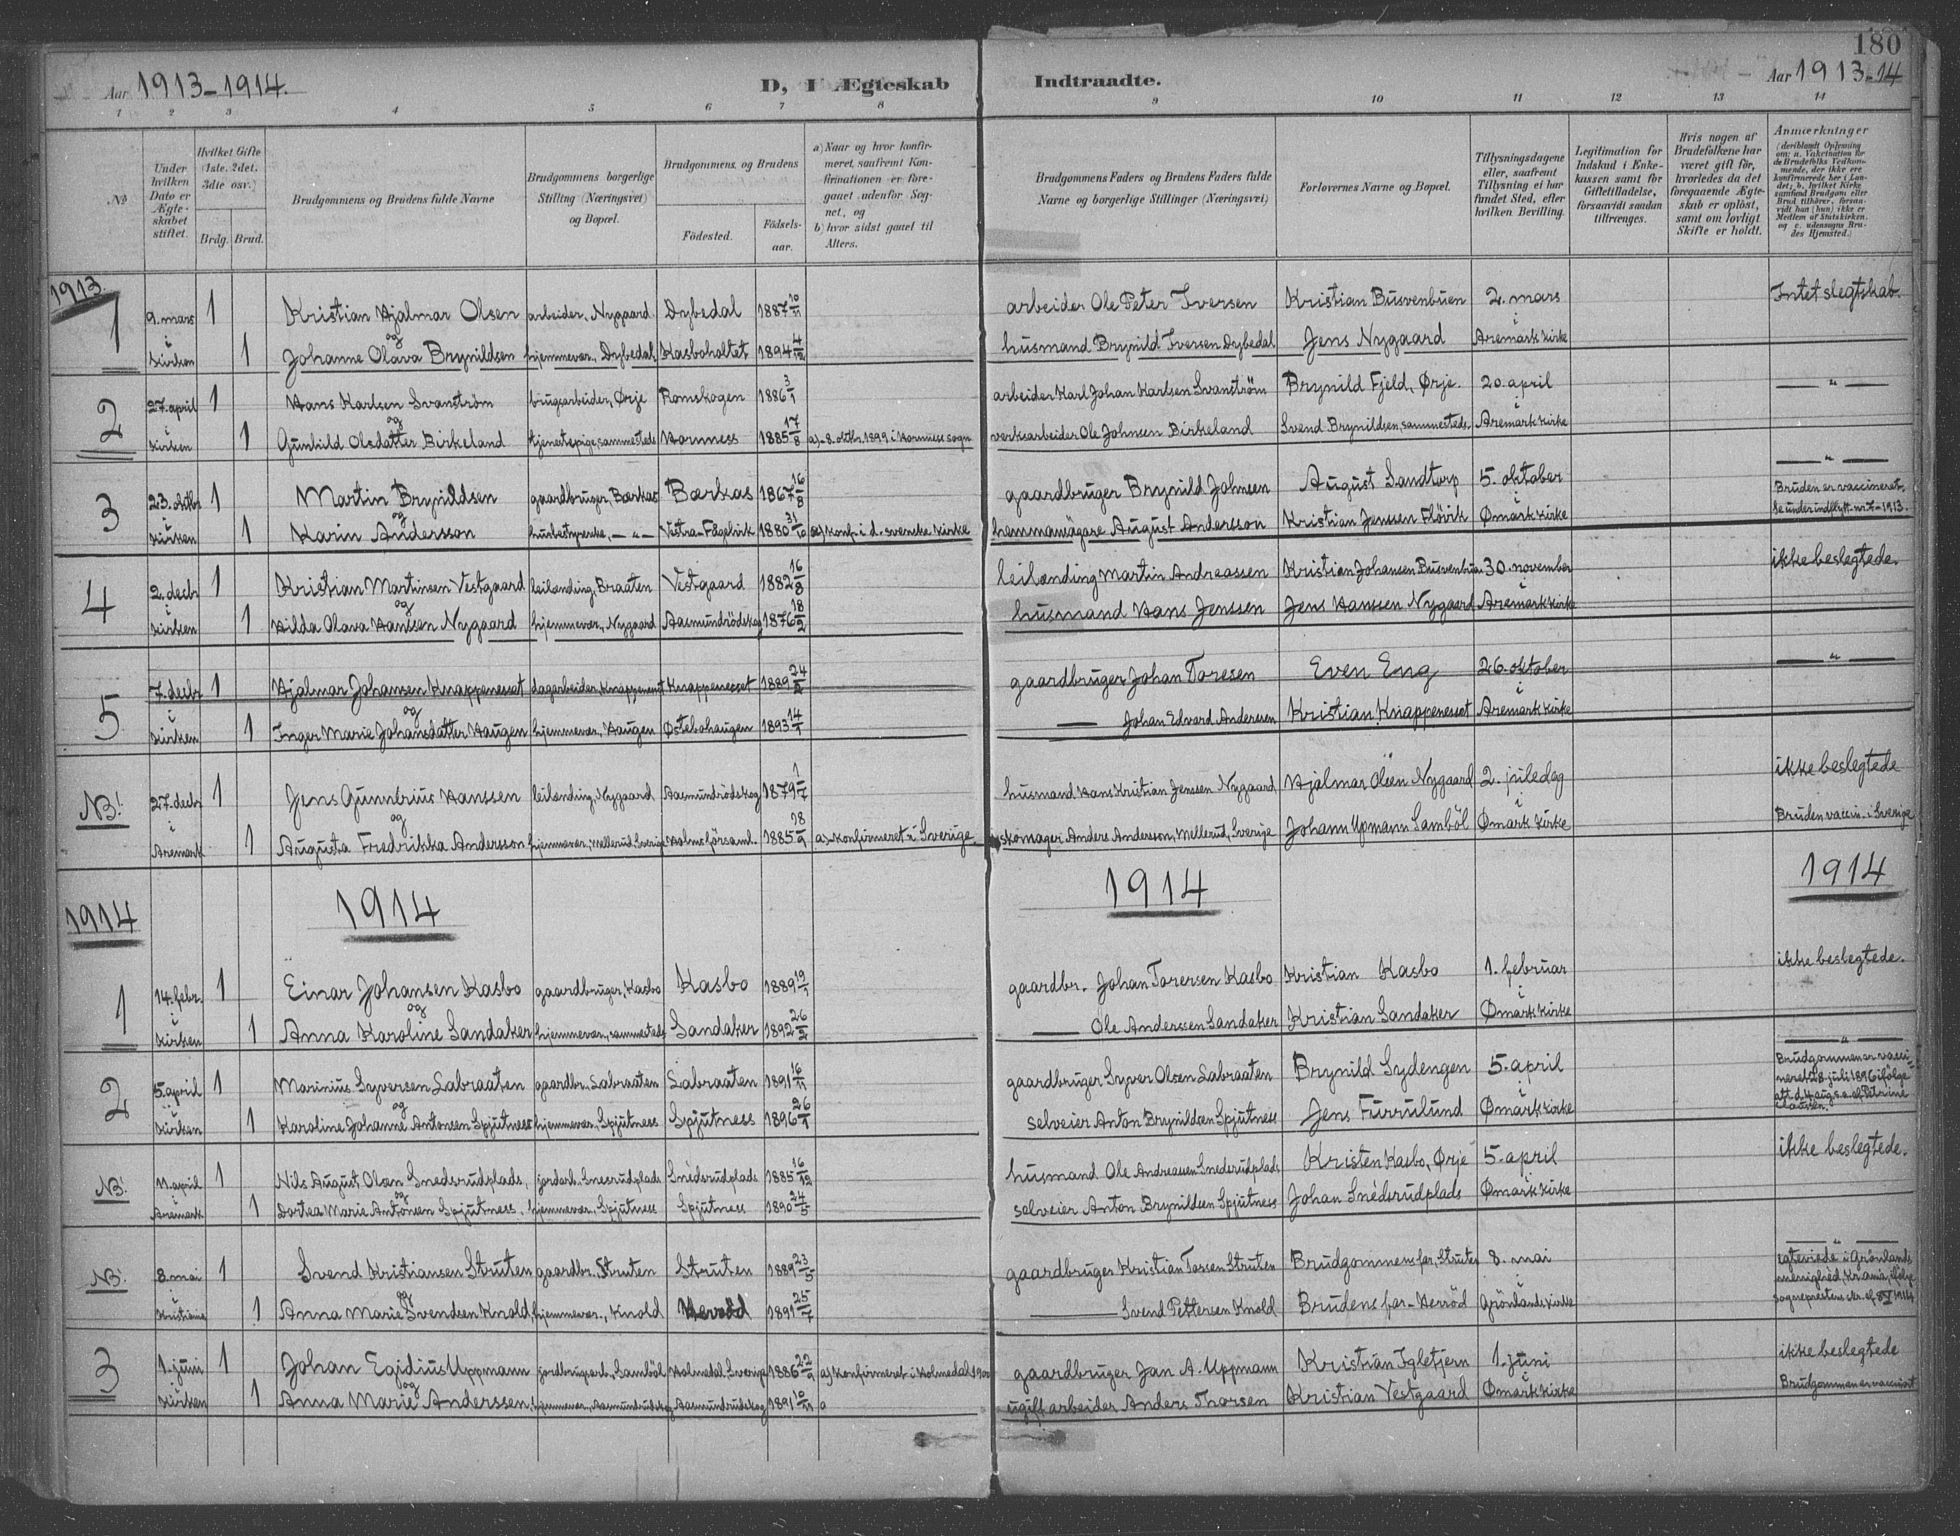 180
Aar 1913-1914.
D, I Ægteskab Indtraadte.
Aar 1913-14
1 2 3 4 5 6 7 8 9 10 11 12 13 14
No
Under hvilken Dato er Ægteskabet stiftet.
Hvilket Gifte (1ste. 2det. 3dte osv.)
Brdg. Brud.
Brudgommens og Brudens fulde Navne
Brudgommens borgerlige Stilling (Næringsvei) og Bopæl.
Brudgommens, og Brudens
Födested. Födsels-aar.
a) Naar og hvor konfirmeret, saafremt Konfirmationen er foregaaet udenfor Sognet, og
b) hvor sidst gaaet til Alters.
Brudgommens Faders og Brudens Faders fulde Navne og borgerlige Stillinger (Næringsvei)
Forlovernes Navne og Bopæl.
Tillysningsdagene eller, saafremt Tillysning ei har fundet Sted, efter hvilken Bevilling.
Legitimation for Indskud i Enkekassen samt for Giftetilladelse, forsaavidt saadan tiltrænges.
Hvis nogen af Brudefolkene har været gift för, hvorledes da det foregaaende Ægteskab er oplöst, samt om lovligt Skifte er holdt.
Anmærkninger
(deriblandt Oplysning om: a. Vakcination for de Brudefolks Vedkommende, der ikke ere konfirmerede her i Landet; b. hvilket Kirkesamfund Brudgom eller Brud tilhörer, forsaavidt han (hun) ikke er Medlem af Statskirken, og c. udensogns Brudes Hjemsted.)
1913.
1 9. mars 1 Kristian Hjalmar Olsen arbeider, Nygaard Dybedal 1887 10/11 arbeider Ole Peter Iversen Kristian Busvenbuen 2. mars Intet slegtskab.
i og i
kirken 1 Johanne Olava Brynildsen hjemmevær., Dybedal, Kasboholtet 1894 4/12 husmand Brynild Iversen Dybedal Jens Nygaard Aremark kirke
2 27. april 1 Hans Karlsen Svanström brugsarbeider, Ørje Romskogen 1886 3/1 arbeider Karl Johan Karlsen Svanström Brynild Fjeld, Ørje. 20. april — " —
i og i
kirken 1 Gunhild Olsdatter Birkeland tjenestepige, sammesteds Hornness 1885 17/8 a)-8. oktbr. 1899 i Hornness sogn verksarbeider Ole Johnsen Birkeland Svend Brynildsen, sammesteds. Aremark kirke
— " —
3 23. oktbr 1 Martin Brynildsen gaardbruger, Bærkas Bærkas 1867 16/8 gaardbruger Brynild Johnsen August Sandtorp 5. oktober Bruden er vaccineret.
i og i se under indflytt. nr. 7-1913.
kirken 1 Karin Andersson husbestyrerke, — " — Vestra-Fågelvik 1880 31/10 a) konf. i d. svenske kirke hemmansägare August Andersson Kristian Jenssen Flövik Ømark kirke
4 2. decbr 1 Kristian Martinsen Vestgaard leilænding, Braaten Vestgaard 1882 16/8 leilænding Martin Andreassen Kristian Johansen Busvenbuen 30. november ikke beslegtede.
i og i
kirken 1 Hilda Olava Hanssen Nygaard hjemmevær., Nygaard Aasmundrödskog 1876 18/2 husmand Hans Jenssen Jens Hanssen Nygaard Aremark kirke
5 7. decbr 1 Hjalmar Johansen Knappenesset dagarbeider, Knappenesset Knappenesset 1889 24/2 gaardbruger Johan Toresen Even Eng 26. oktober — " —
i og i
kirken 1 Inger Marie Johansdatter Haugen hjemmevær., Haugen Østebøhaugen 1893 14/1 — Johan Edvard Andersen Kristian Knappenesset Aremark kirke
NB! 27. decbr 1 Jens Gunnerius Hanssen leilænding, Nygaard Aasmundrödskog 1879 1/7 husmand Hans Kristian Jenssen Nygaard Hjalmar Olsen Nygaard 2. juledag ikke beslegtede
i og i
Aremark 1 Augusta Fredrikka Andersson hjemmevær., Mellerud Sverige Holms församl. 1885 18/9 a) konfirmeret i Sverige. skomager Anders Andersson, Mellerud, Sverige Johann Upmann Samböl Ømark kirke Bruden vaccin. i Sverige
1914 1914 1914 1914
1 14. febr. 1 Einar Johansen Kasbo gaardbruger, Kasbo Kasbo 1889 19/1 gaardbr. Johan Toresen Kasbo Kristian Kasbo 1. februar ikke beslegtede.
i og i
kirken 1 Anna Karoline Sandaker hjemmevær., sammesteds Sandaker 1892 26/2 — Ole Anderssen Sandaker Kristian Sandaker Ømark kirke
— " —
2 5. april 1 Marinius Syversen Labraaten gaardbr., Labraaten Labraaten 1891 16/11 gaardbruger Syver Olsen Labraaten Brynild Sydengen 5. april Brudgommen er vaccineret 28. juli 1896 ifölge att. d. 4 aug. s. a. af Petrine Clausen.
i og i
kirken 1 Karoline Johanne Antonsen Spjutness hjemmevær., Spjutness Spjutness 1896 26/1 selveier Anton Brynildsen Spjutness Jens Furrulund Ømark kirke
NB! 11. april 1 Nils August Olsen Snedsrudplads, jordarb. Snesrudplads Snédsrudplads 1885 16/12 husmand Ole Andreasen Snedsrudplads Kristen Kasbo, Ørje 5. april ikke beslegtede.
i og i
Aremark 1 Dortea Marie Antonsen Spjutness, hjemmevær., Spjutness Spjutness 1890 24/5 selveier Anton Brynildsen Spjutness Johan Snédsrudplads Ømark kirke
NB! 8. mai 1 Svend Kristiansen Struten gaardbr. Struten Struten 1889 23/5 gaardbruger Kristian Torsen Struten Brudgommens far, Struten 8. mai — " —
i og i egteviede i Grönlands menighed, Kr.ania, ifölge sogneprestens skr. af 8/V 1914
Kristiania 1 Anna Marie Svendsen Knold, hjemmevær., Knold Herröd 1891 25/7 — Svend Pettersen Knold Brudens far - Herröd Grönlands kirke
3 1. juni 1 Johan Egidius Uppmann jordbrugsarb., Samböl Holmedal Sverige 1886 22/9 a) konfirmeret i Holmedal 1900 gaardbruger Jan A. Uppmann Kristian Igletjern 1. juni ikke beslegtede
i og i
kirken 1 Anna Marie Anderssen, hjemmevær., Aasmundrudskog Aasmundrudskog 1891 10/11 ugift arbeider Anders Thorsen Kristian Vestgaard Ømark kirke Brudgommen er vaccinert